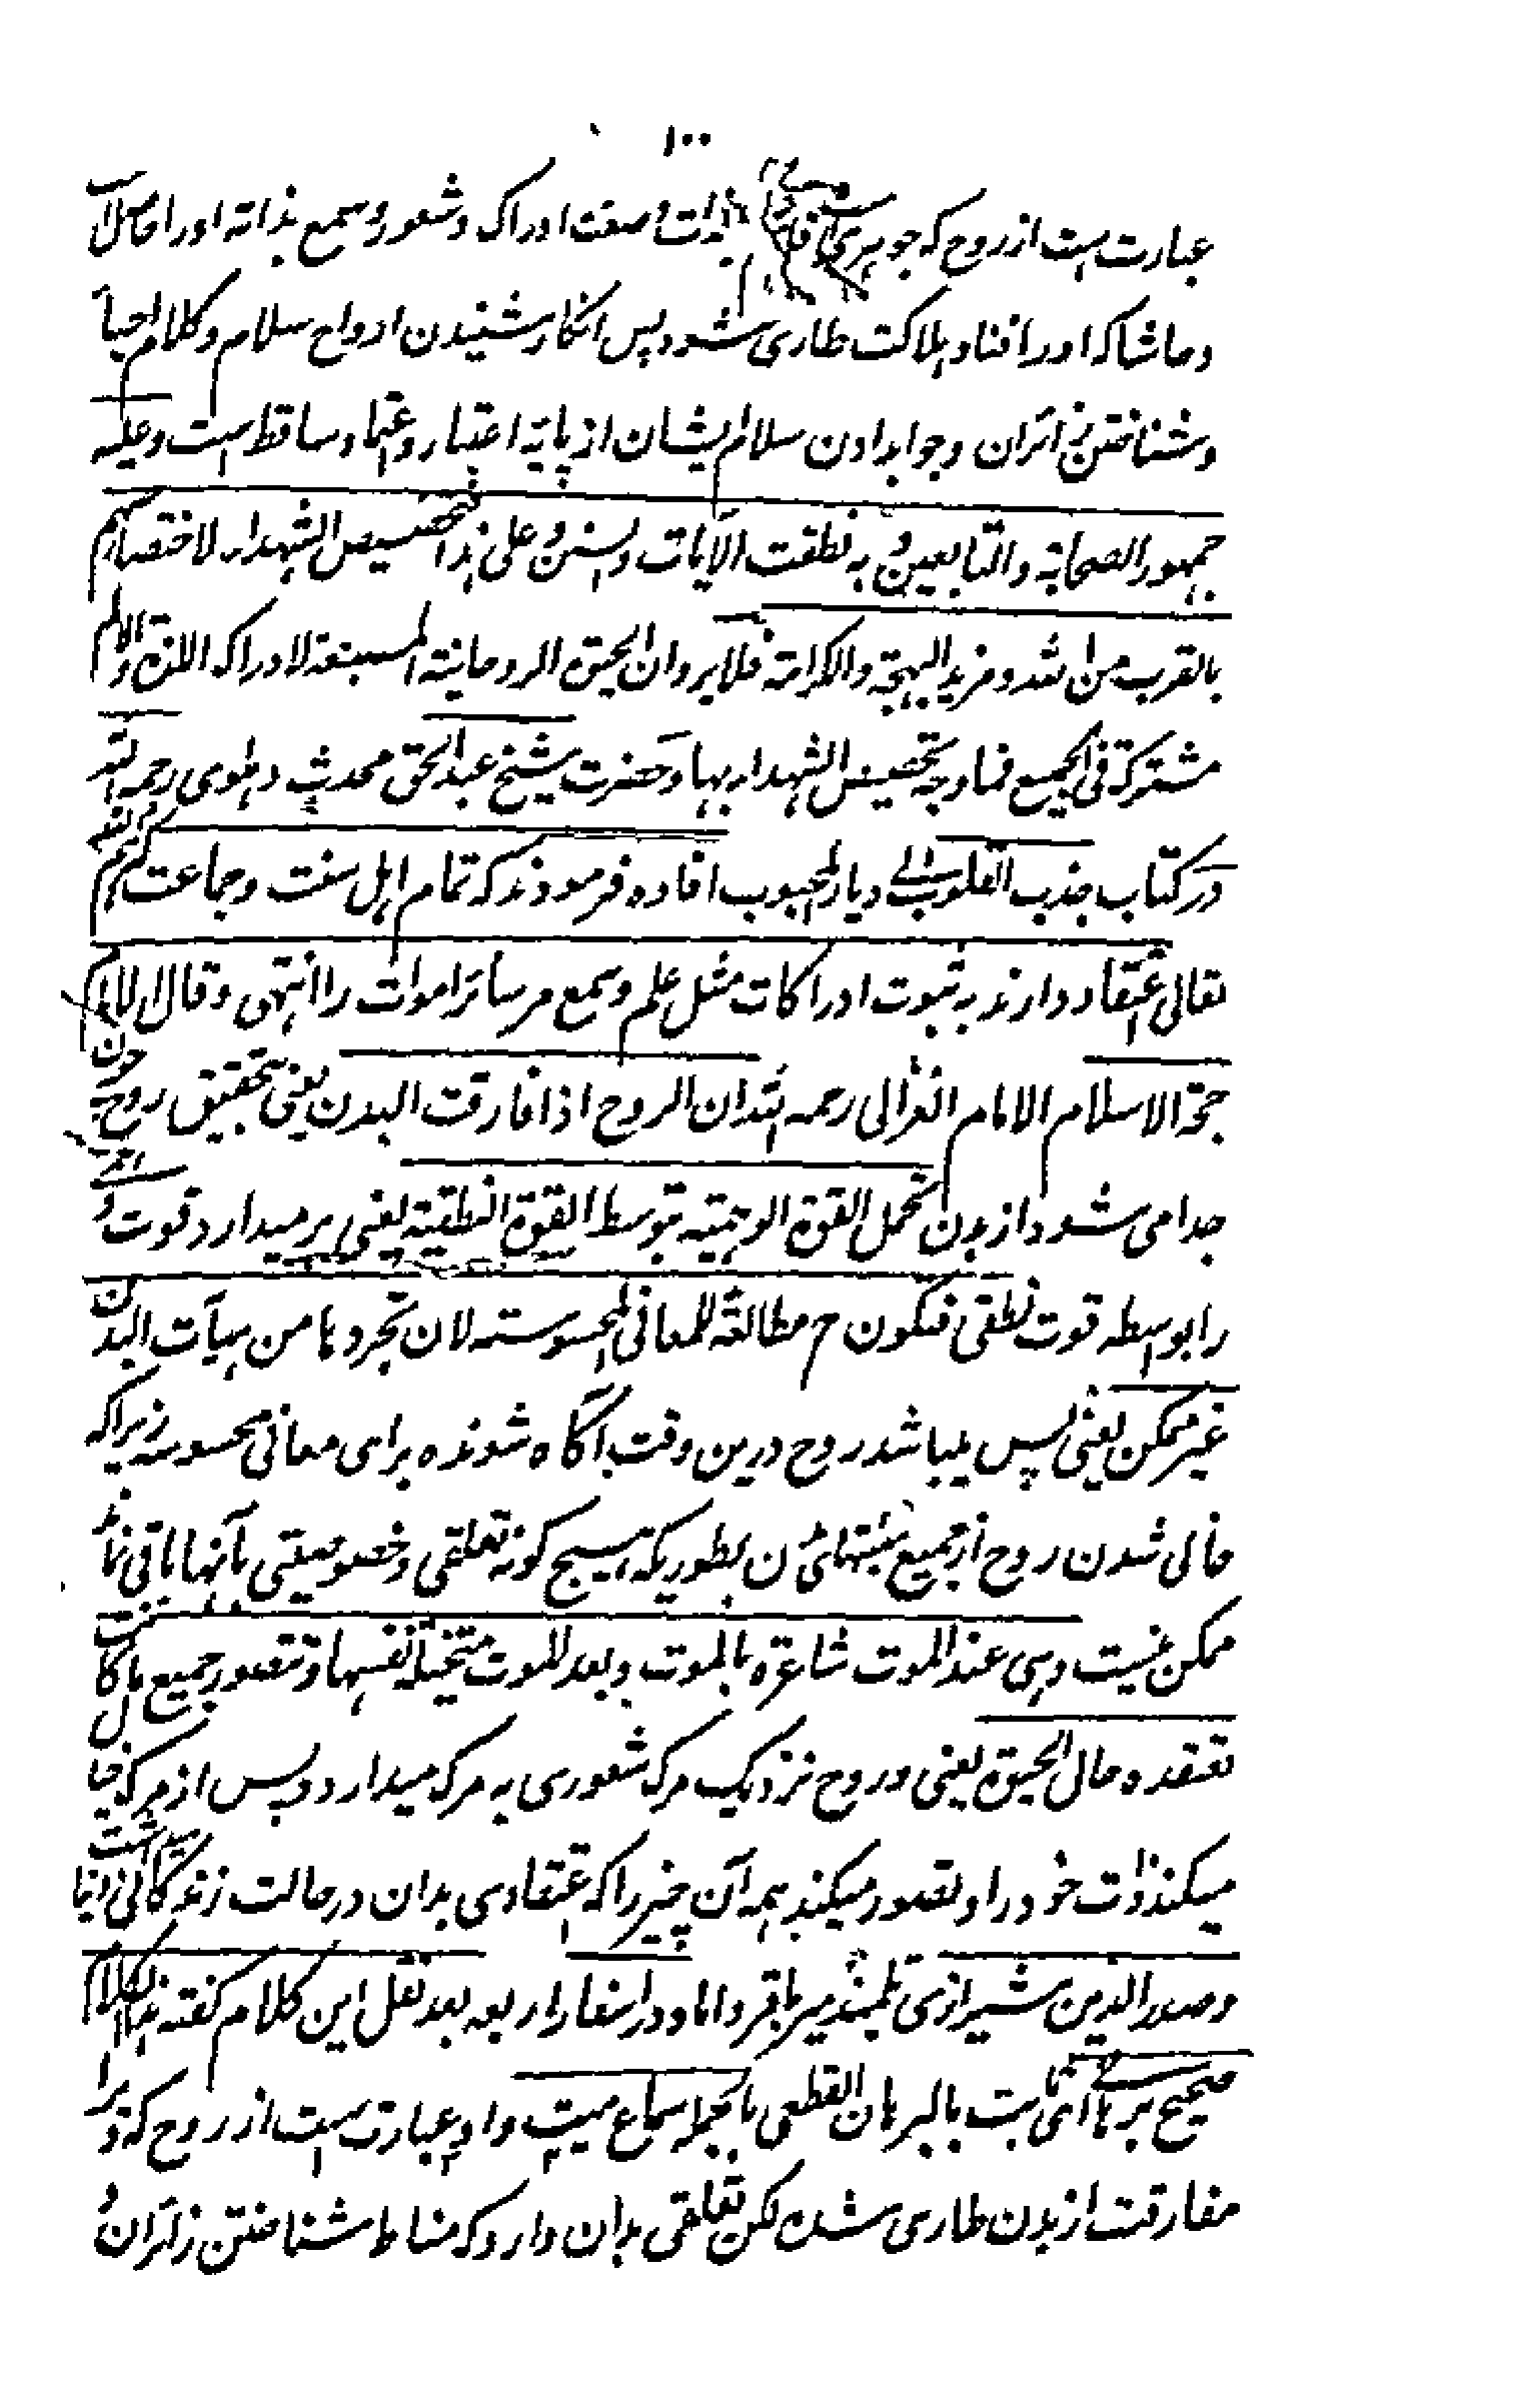 ۱۰۰
عبارت است از روح که جوهری است قائم بذات و صفت ادراک و شعور و سمع بذاته او را حاصل
و حاشا که او را فنا و هلاکت طاری شود پس انکار شنیدن ارواح سلام و کلام احیا
و شناختن زائران و جواب دادن سلام ایشان از پایۀ اعتبار و اعتماد ساقط است و علیه
جمهور الصحابة و التابعین و به نطقت الآیات و السنن و علی هذا فتخصیص الشهداء لاختصاصهم
بالقرب من الله و مزید البهجة و الکرامة فلا یرد ان الحیوة الروحانیة المستتبعة لادراک اللذة و الالم
مشترکة فی الجمیع فما وجه تخصیص الشهداء بها و حضرت شیخ عبد الحق محدث دهلوی رحمه الله
در کتاب جذب القلوب الی دیار المحبوب افاده فرمودند که تمام اهل سنت و جماعت کثرهم الله
تعالی اعتقاد دارند به ثبوت ادراکات مثل علم و سمع مر سائر اموات را انتهی و قال الامام
حجة الاسلام الامام الغزالی رحمه الله ان الروح اذا فارقت البدن یعنی بتحقیق روح چون
جدا می شود از بدن تحمل القوة الوهمیة بتوسط القوة النطقیة یعنی برمیدارد قوت وهمی
را بواسطه قوت نطقی فتکون ح مطالعة للمعانی المحسوسة لان تجردها من هیآت البدن
غیر ممکن یعنی پس میباشد روح درین وقت آگاه شونده برای معانی محسوسه زیراکه
خالی شدن روح از جمیع هیئتهای بدن بطوریکه هیچ گونه تعلقی و خصوصیتی بآنها باقی نماند
ممکن نیست و هی عند الموت شاعرة بالموت و بعد الموت متخیلة نفسها و تتصور جمیع ما کانت
تعتقده حال الحیوة یعنی و روح نزدیک مرگ شعوری به مرگ میدارد و پس از مرگ خیال
میکند ذات خود را و تصور میکند همه آن چیز را که اعتقادی بدان در حالت زندگانی دنیا میداشت
و صدر الدین شیرازی تلمیذ میر باقر داماد در اسفار اربعه بعد نقل این کلام گفته هذا الکلام
صحیح برهانی ثابت بالبرهان القطعی بالجمله سماع میت و او عبارت است از روح که ویرا
مفارقت از بدن طاری شده لکن تعلقی بدان دارد که مناط شناختن زائران و